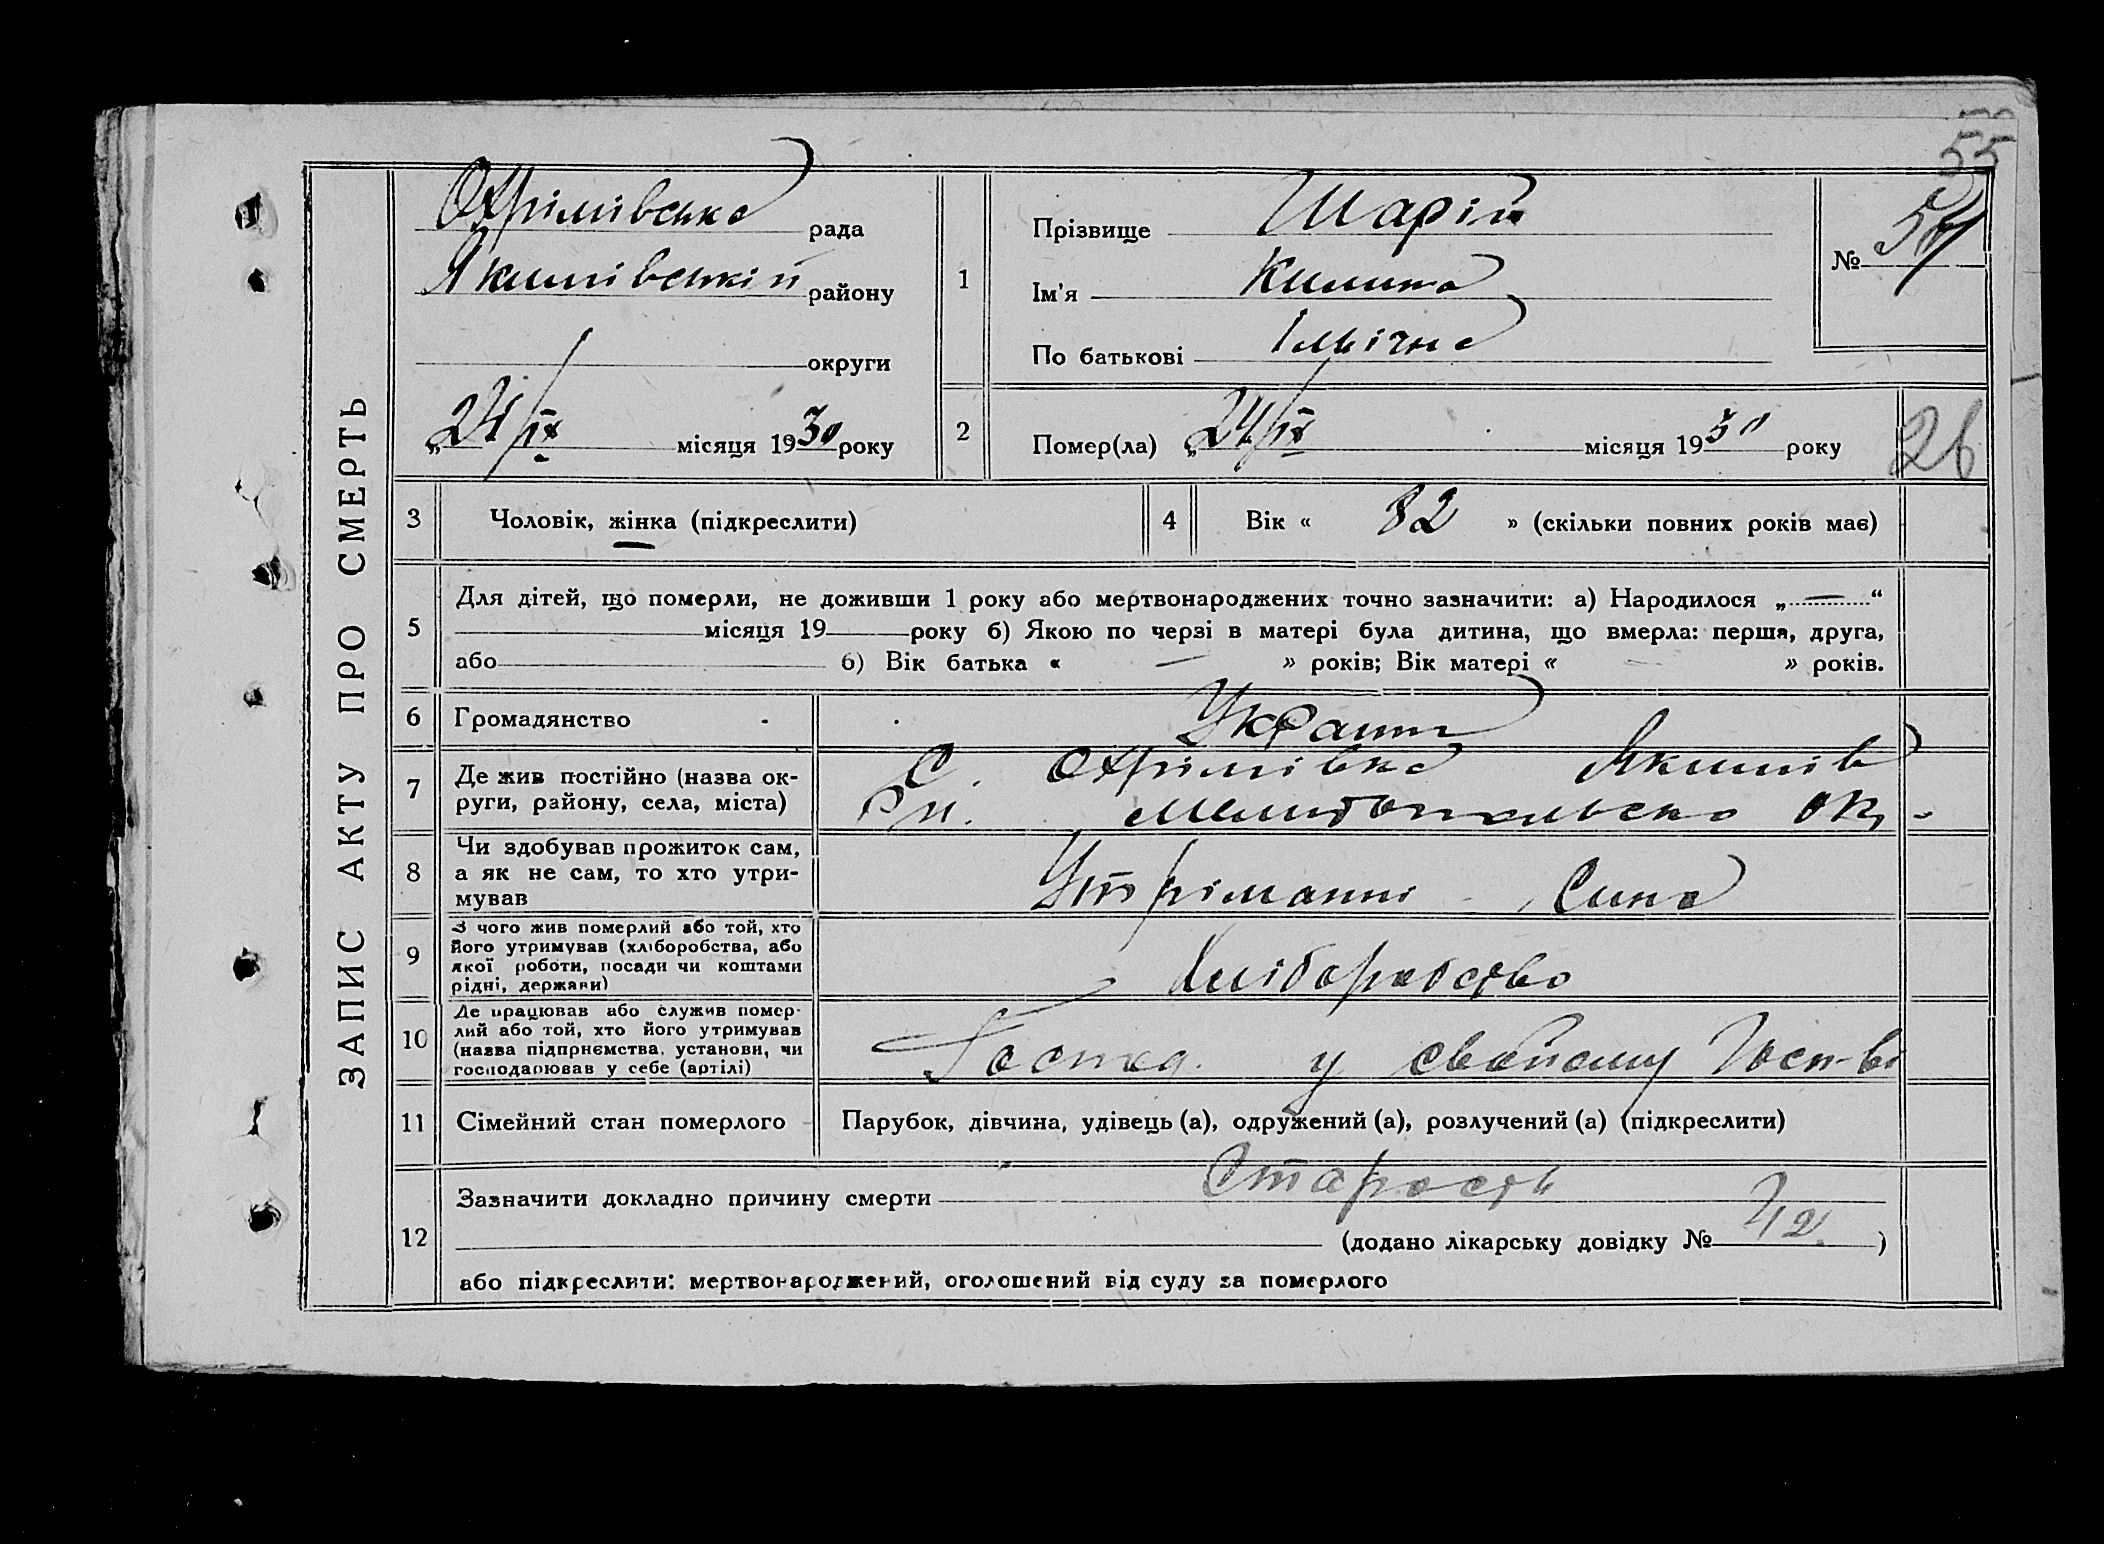 55
ЗАПИС АКТУ ПРО СМЕРТЬ
Охрімівська рада
Якимівський району
округи
„ 24/ІХ місяця 1930 року
1
Прізвище Шарій
Ім'я Килина
По батькові Іллічна
№ 54
2
Помер(ла) „ 24/ІХ місяця 1930 року
26
3 Чоловік, жінка (підкреслити)
4 Вік « 82 » (скільки повних років має)
5
Для дітей, що померли, не доживши 1 року або мертвонароджених точно зазначити: а) Народилося „ — “
місяця 19 року б) Якою по черзі в матері була дитина, що вмерла: перша, друга,
або б) Вік батька « — » років; Вік матері « — » років.
6 Громадянство Украіни
7
Де жив постійно (назва ок-
руги, району, села, міста)
С. Охрімівка Якимів
Мелитопольска ок.
8
Чи здобував прожиток сам,
а як не сам, то хто утри-
мував
Утріманні Сина
9
З чого жив померлий або той, хто
його утримував (хліборобства, або
якої роботи, посади чи коштами
рідні, держави)
Хліборобство
10
Де працював або служив помер-
лий або той, хто його утримував
(назва підприємства, установи, чи
господарював у себе (артілі)
Господ. у свойому Госп-ві
11 Сімейний стан померлого
Парубок, дівчина, удівець (а), одружений (а), розлучений (а) (підкреслити)
12
Зазначити докладно причину смерти Старость
(додано лікарську довідку № 42 )
або підкреслити: мертвонароджений, оголошений від суду за померлого